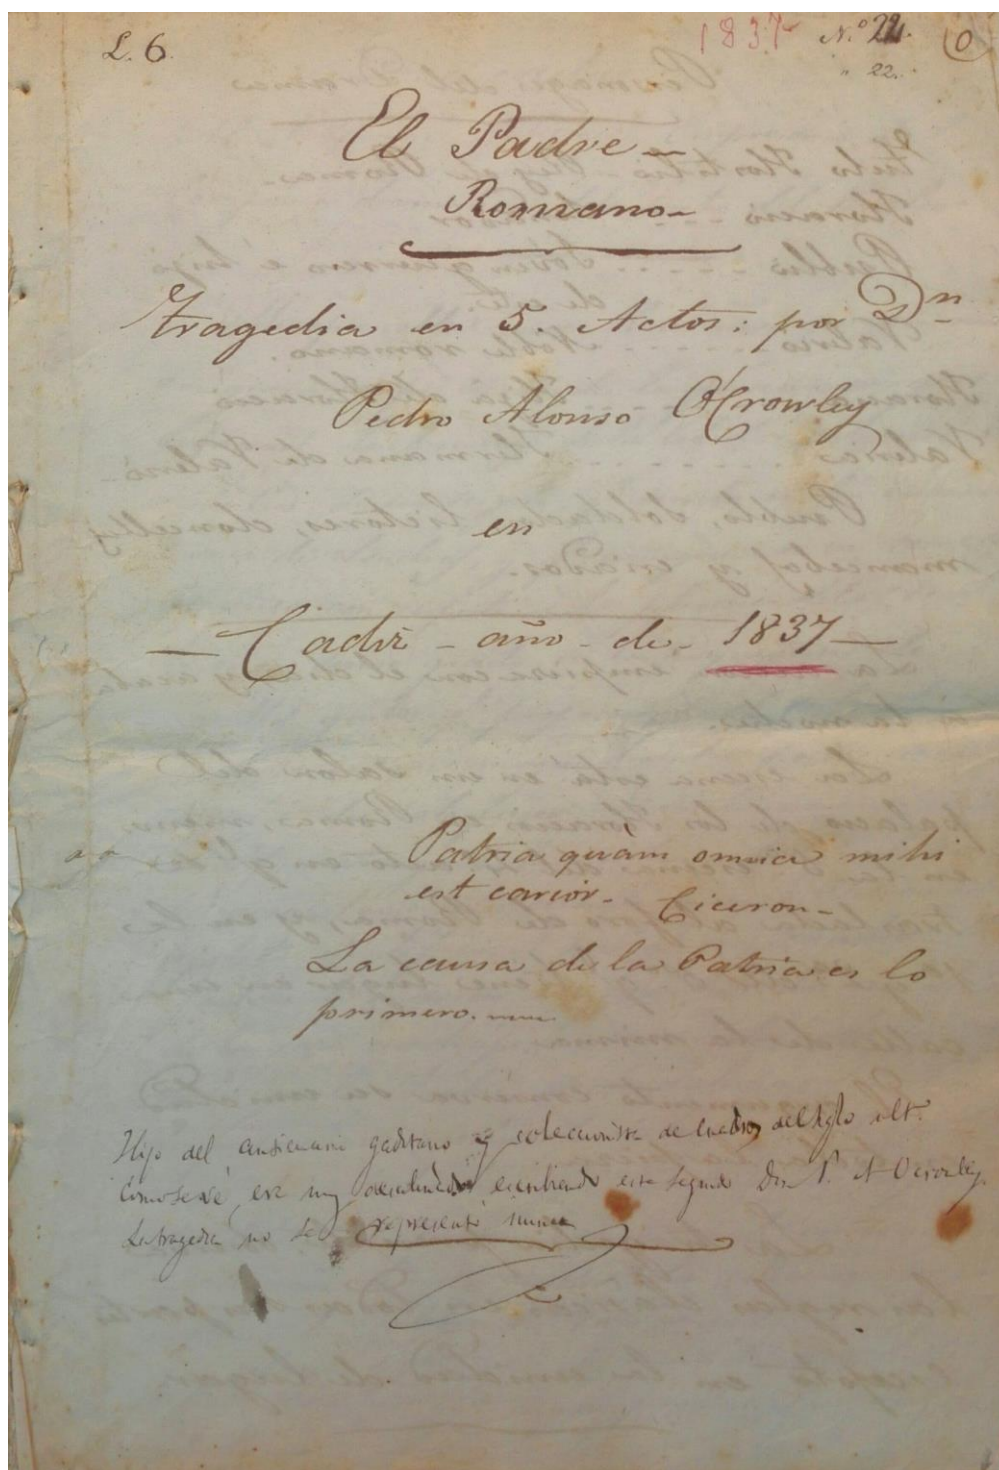 L. 6.
1837
N.º 22.
" 22. "
10
El Padre
Romano
Tragedia en 5. Actos: por Dn
Pedro Alonso O'Crowley
en
Cadiz - año - de - 1837
Patria quam omnia mihi
est carior. Ciceron
La causa de la Patria es lo
primero.
Hijo del anticuario gaditano y coleccionista de cuadros del siglo ult.
Como se ve, era muy escribiendo este segundo Dn P. A Ocrowley.
La tragedia no se representó nunca